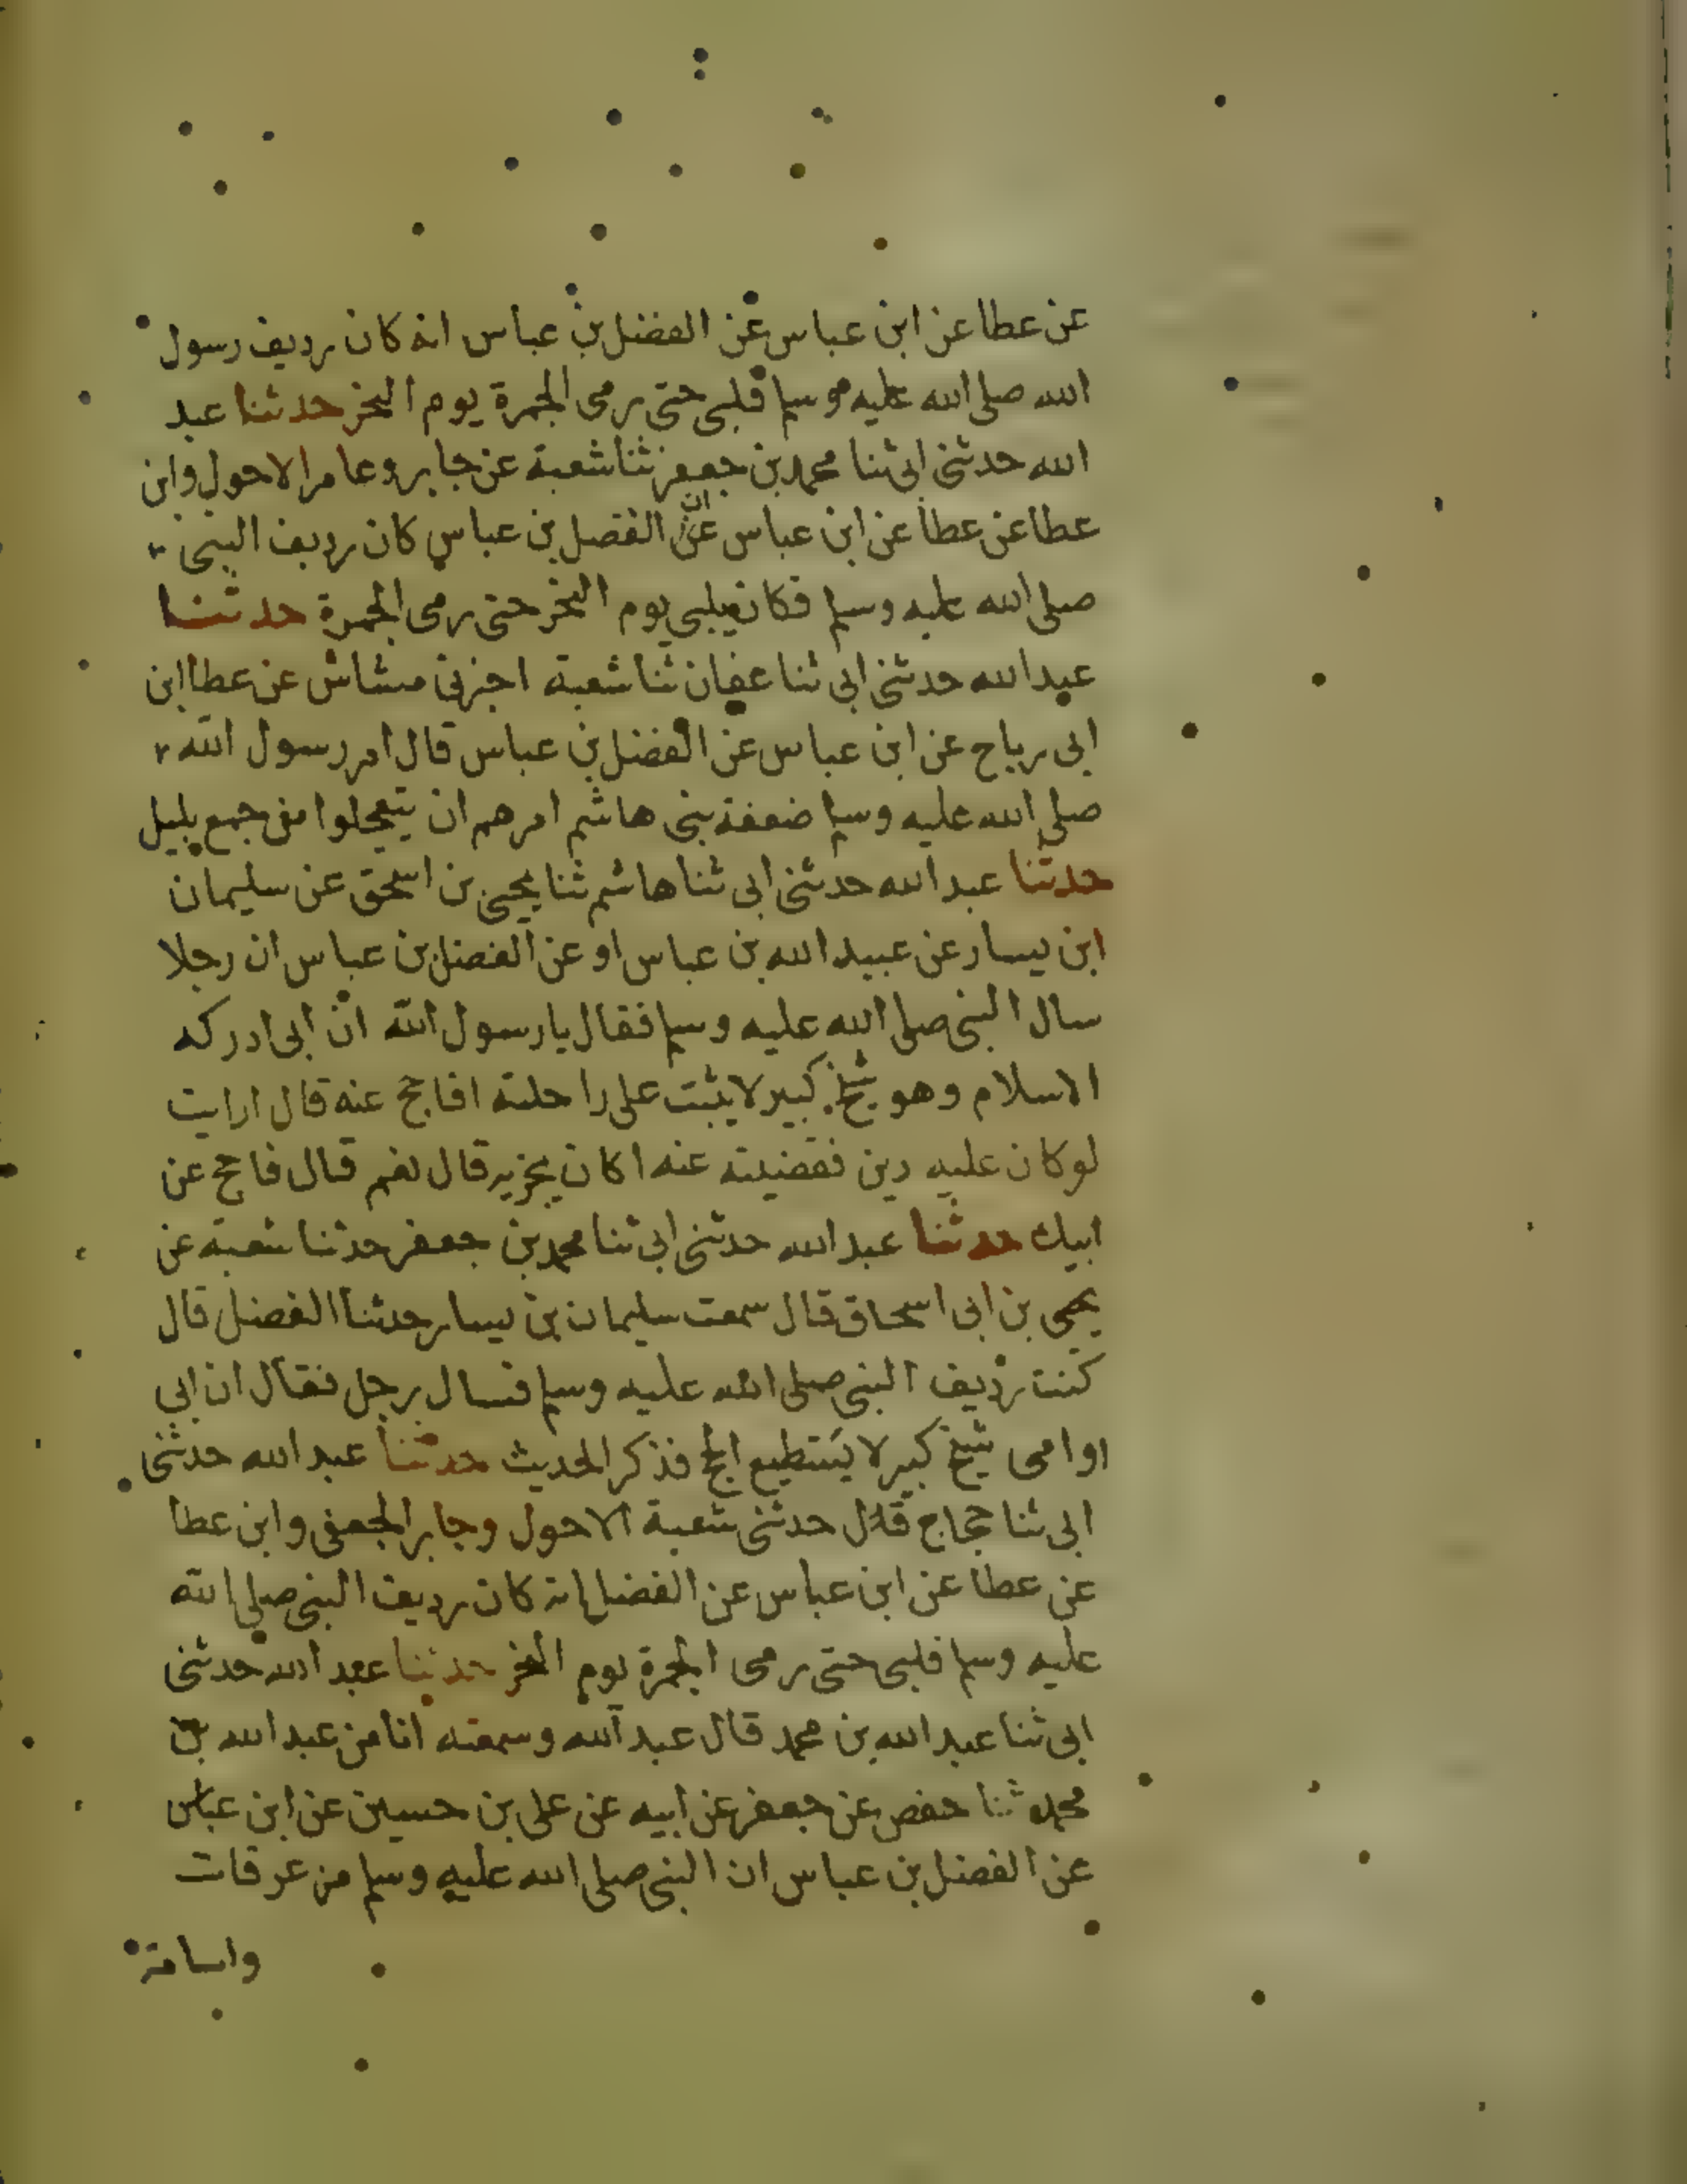 عن عطا عن ابن عباس عن الفضل بن عباس انه كان رديف رسول
الله صلى الله عليه وسلم فلبى حتى رمى الجمرة يوم النحر حدثنا عبد
الله حدثنى ابى ثنا محمد بن جعفر ثنا شعبة عن جابر وعامر الاحول وابن
عطا عن عطا عن ابن عباس عن ان الفضل بن عباس كان رديف النبى
صلى الله عليه وسلم فكان يلبى يوم النحر حتى رمى الجمرة حدثنا
عبد الله حدثنى ابى ثنا عفان ثنا شعبة اخبرنى مشاش عن عطا ابن
ابى رباح عن ابن عباس عن الفضل بن عباس قال امر رسول الله
صلى الله عليه وسلم ضعفة بنى هاشم امرهم ان يتعجلوا من جمع بليل
حدثنا عبد الله حدثنى ابى ثنا هاشم ثنا يحيى بن اسحق عن سليمان
ابن يسار عن عبيد الله بن عباس او عن الفضل بن عباس ان رجلا
سال النبى صلى الله عليه وسلم فقال يا رسول الله ان ابى ادركه
الاسلام وهو شيخ كبير لا يثبت على راحلته افاحج عنه قال ارايت
لو كان عليه دين فقضيته عنه اكان يجزيه قال نعم قال فاحج عن
ابيك حدثنا عبد الله حدثنى ابى ثنا محمد بن جعفر حدثنا شعبة عن
يحيى بن ابى اسحاق قال سمعت سليمان بن يسار حدثنا الفضل قال
كنت رديف النبى صلى الله عليه وسلم فسال رجل فقال ان ابى
او امى شيخ كبير لا يستطيع الحج فذكر الحديث حدثنا عبد الله حدثنى
ابى ثنا حجاج قال حدثنى شعبة الاحول وجابر الجعفى وابن عطا
عن عطا عن ابن عباس عن الفضل انه كان رديف النبى صلى الله
عليه وسلم فلبى حتى رمى الجمرة يوم النحر حدثنا عبد الله حدثنى
ابى ثنا عبد الله بن محمد قال عبد الله وسمعته انا من عبد الله بن
محمد ثنا حفص عن جعفر عن ابيه عن على بن حسين عن ابن عباس
عن الفضل بن عباس ان النبى صلى الله عليه وسلم من عرفات
واسامة